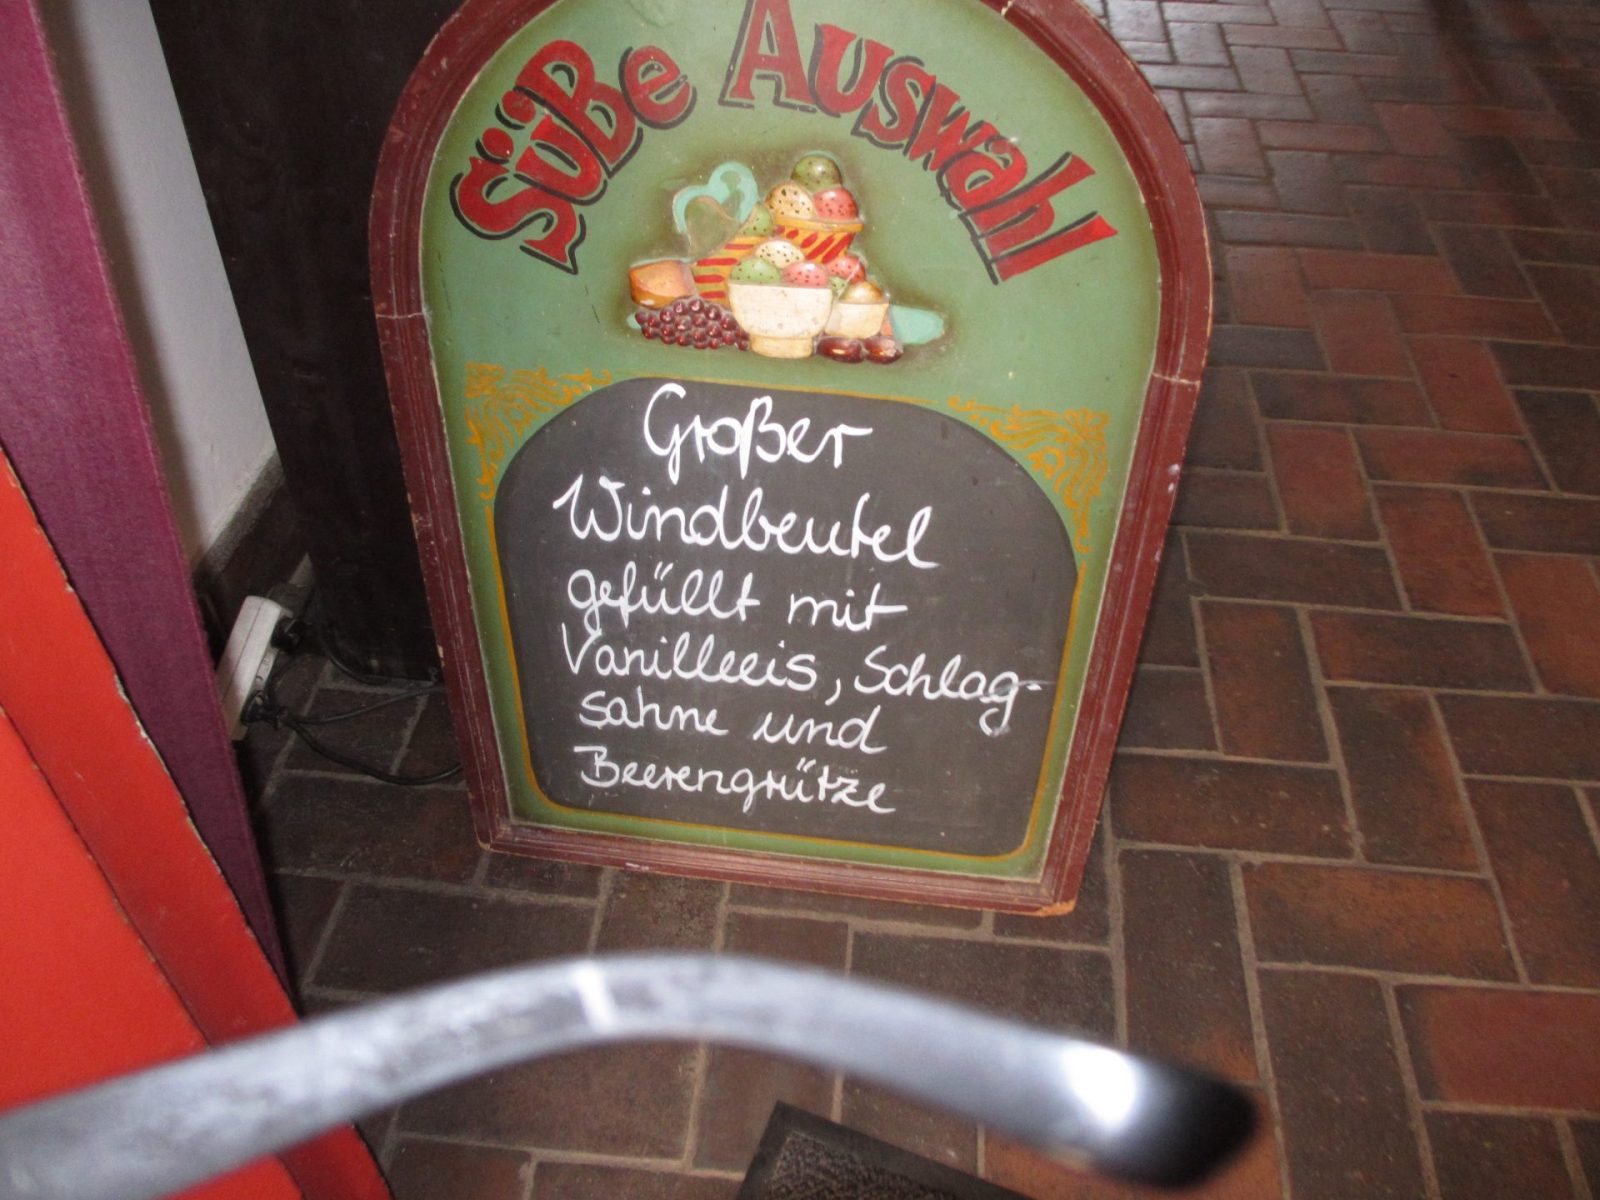 Süße Auswahl
Großer
Windbeutel
gefüllt mit
Vanilleeis, Schlag-
sahne und
Beerengrütze